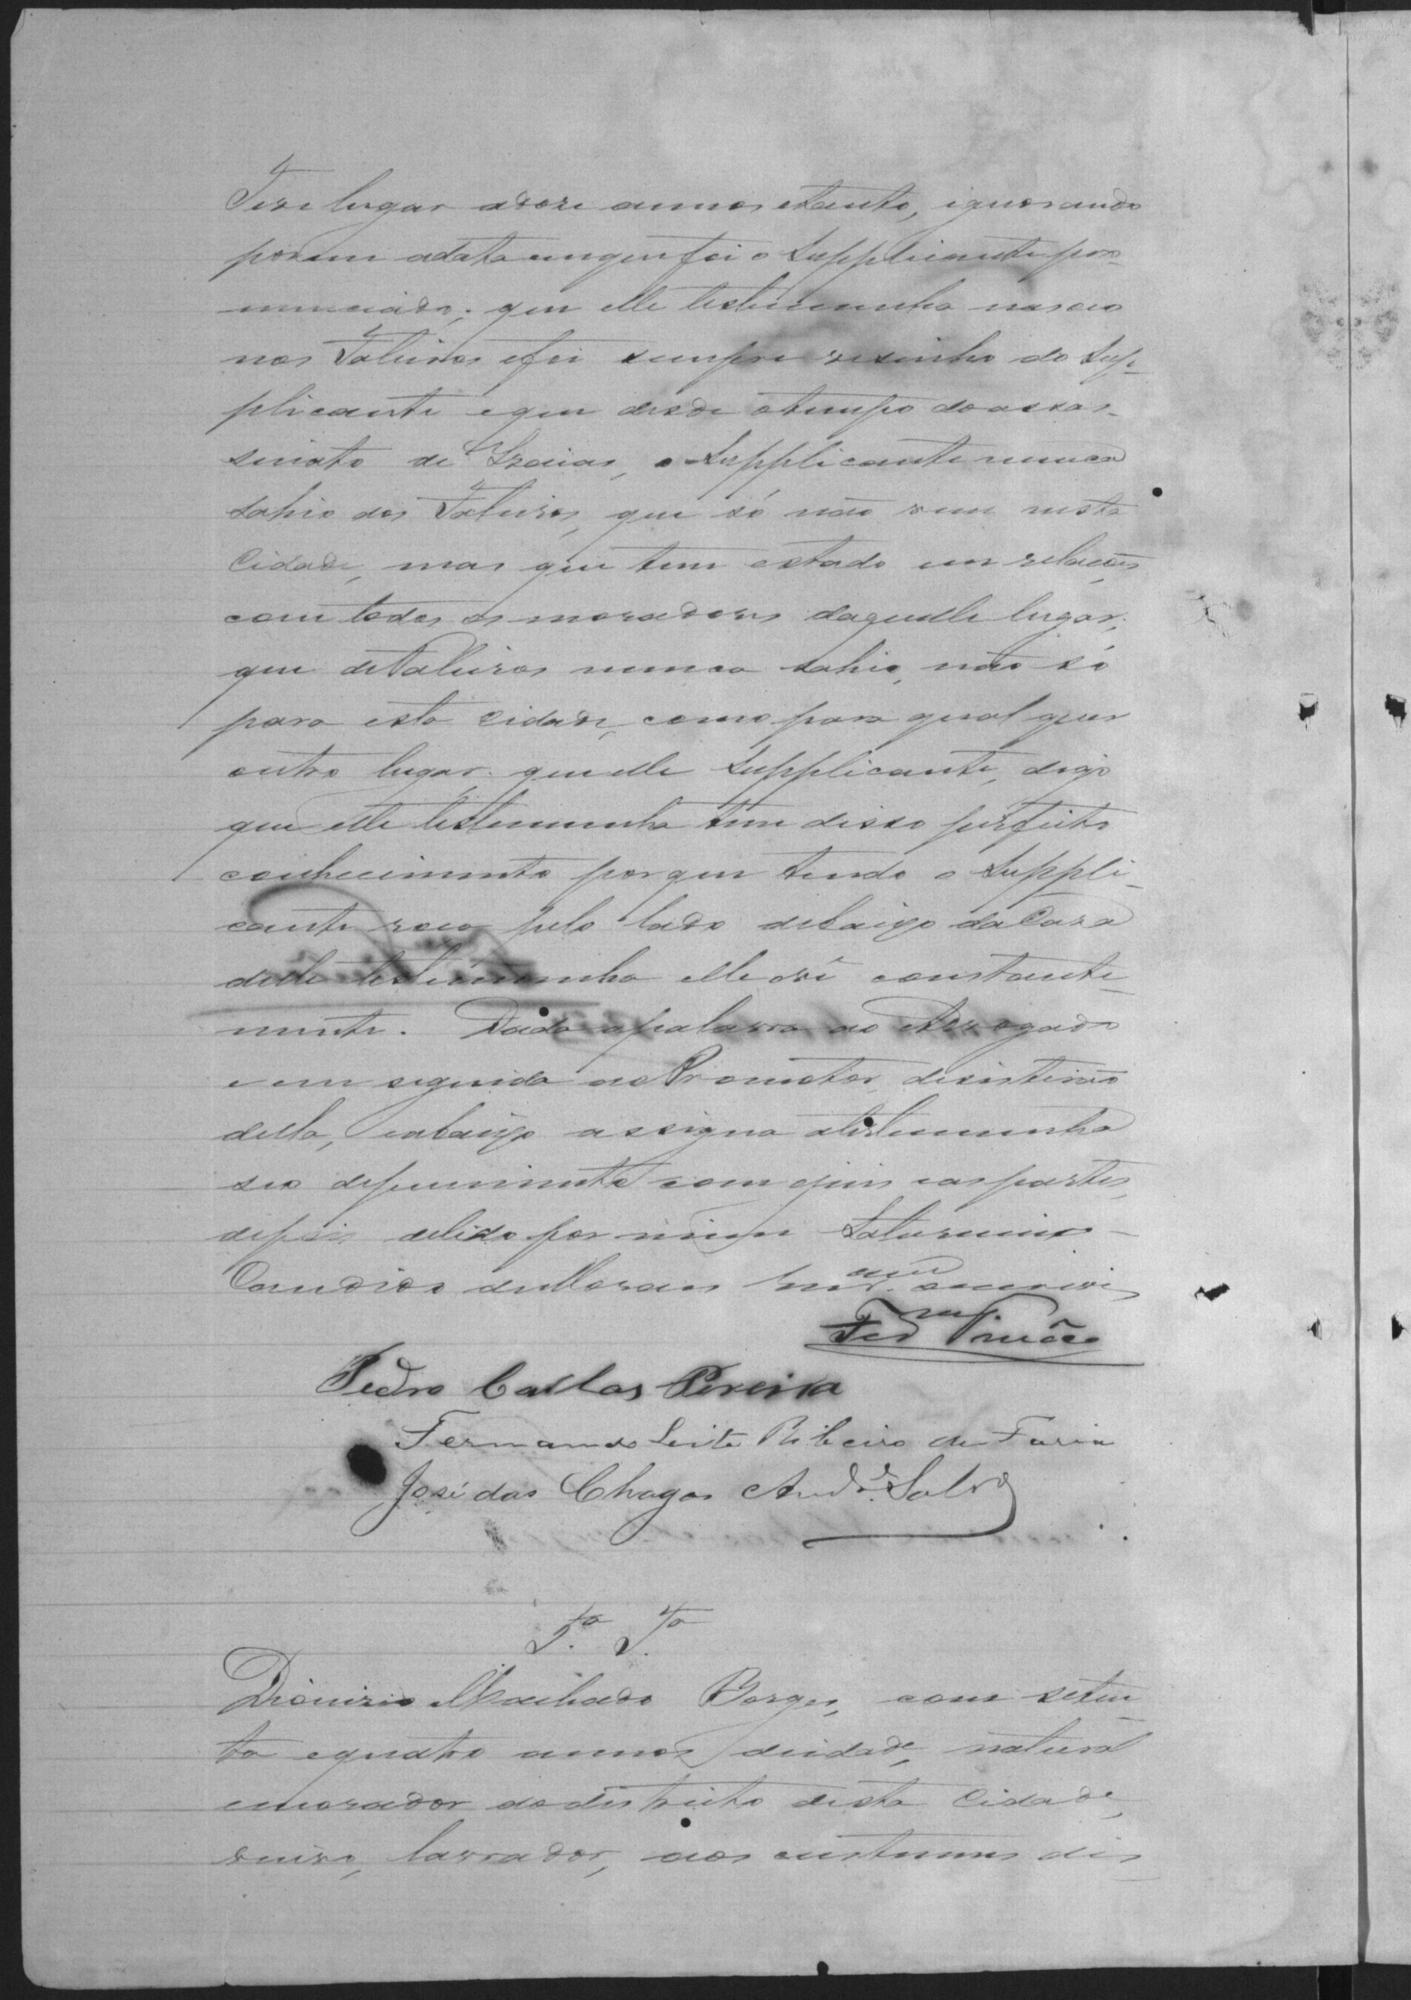 Teve lugar a doze annos e tanto, ignorando
porem a data em que foi o Supplicante pro-
nunciado; que elle testemunha nasceu
nos Talivros e foi sempre vesinho do Sup-
plicante e que desde o tempo do assas-
sinato de Izaias, o Supplicante nunca
sahio dos Talivros, que só não vem nesta
Cidade, mas que tem estado em relacões
com todos os moradores daquelle lugar;
que de Talivros nunca sahio, não só
para esta cidade, como para qual quer
outro lugar. que elle Supplicante, digo
que elle testemunha tem disso perfeito
conhecimento por que tendo o Suppli-
cante roça pelo lado debaixo da Casa
delle testemunha elle o vê constante-
mente. Dada a palavra ao Advogado
e em seguida ao Promotor, desistirão
della, e abaixo assigna a testemunha
seu depoimento com o juis e as partes,
depois de lido por mim Saturnino
Candido de Moraes escrevi
Pedro Caldas Pereira
Fernando Leite Ribeiro de Faria
José das Chagas And.e Salvº
5.ª T.ª
Dionizio Machado Borges, com seten-
ta e quatro annos de idade, natural
e morador do districto desta Cidade,
viuvo, lavrador, aos custumes dis